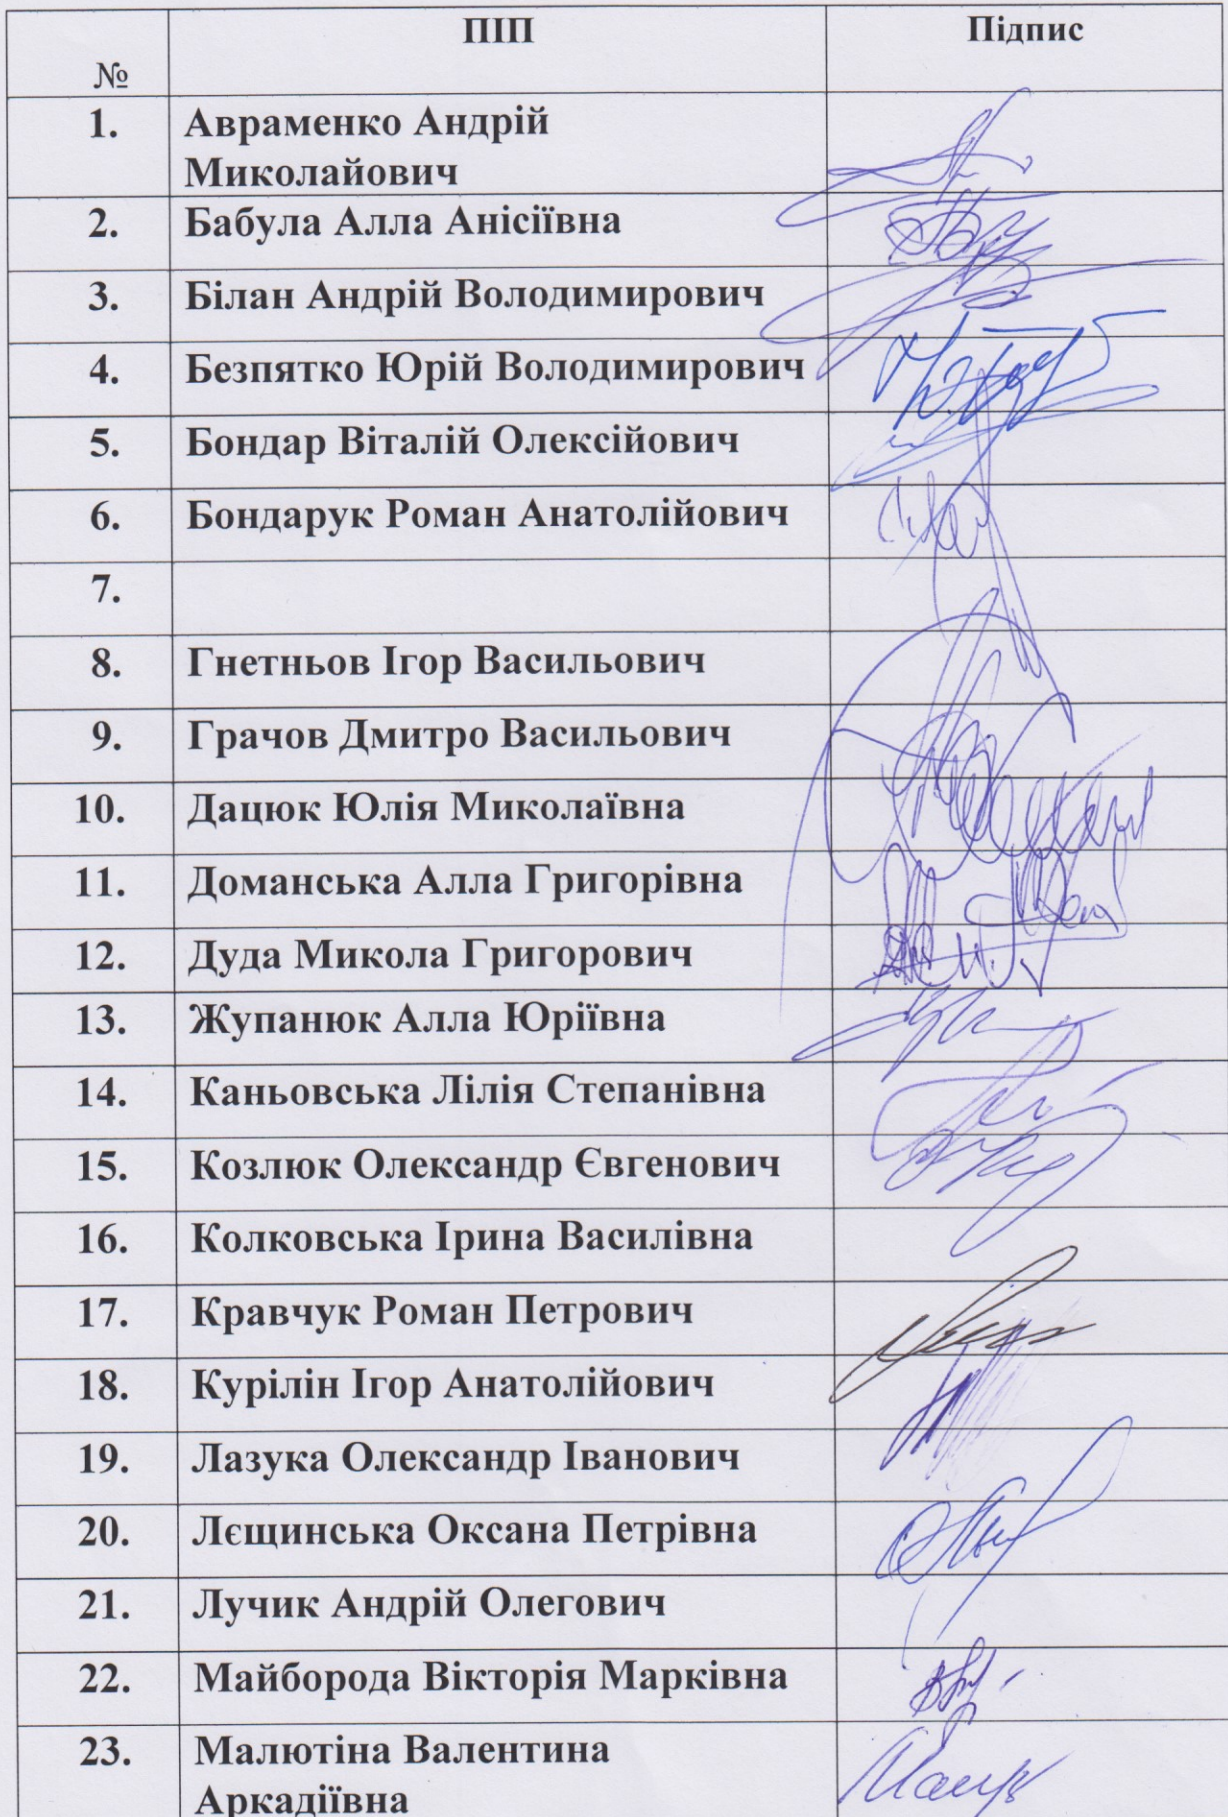 № ПІП Підпис
1. Авраменко Андрій
Миколайович
2. Бабула Алла Анісіївна
3. Білан Андрій Володимирович
4. Безпятко Юрій Володимирович
5. Бондар Віталій Олексійович
6. Бондарук Роман Анатолійович
7.
8. Гнетньов Ігор Васильович
9. Грачов Дмитро Васильович
10. Дацюк Юлія Миколаївна
11. Доманська Алла Григорівна
12. Дуда Микола Григорович
13. Жупанюк Алла Юріївна
14. Каньовська Лілія Степанівна
15. Козлюк Олександр Євгенович
16. Колковська Ірина Василівна
17. Кравчук Роман Петрович
18. Курілін Ігор Анатолійович
19. Лазука Олександр Іванович
20. Лєщинська Оксана Петрівна
21. Лучик Андрій Олегович
22. Майборода Вікторія Марківна
23. Малютіна Валентина
Аркадіївна